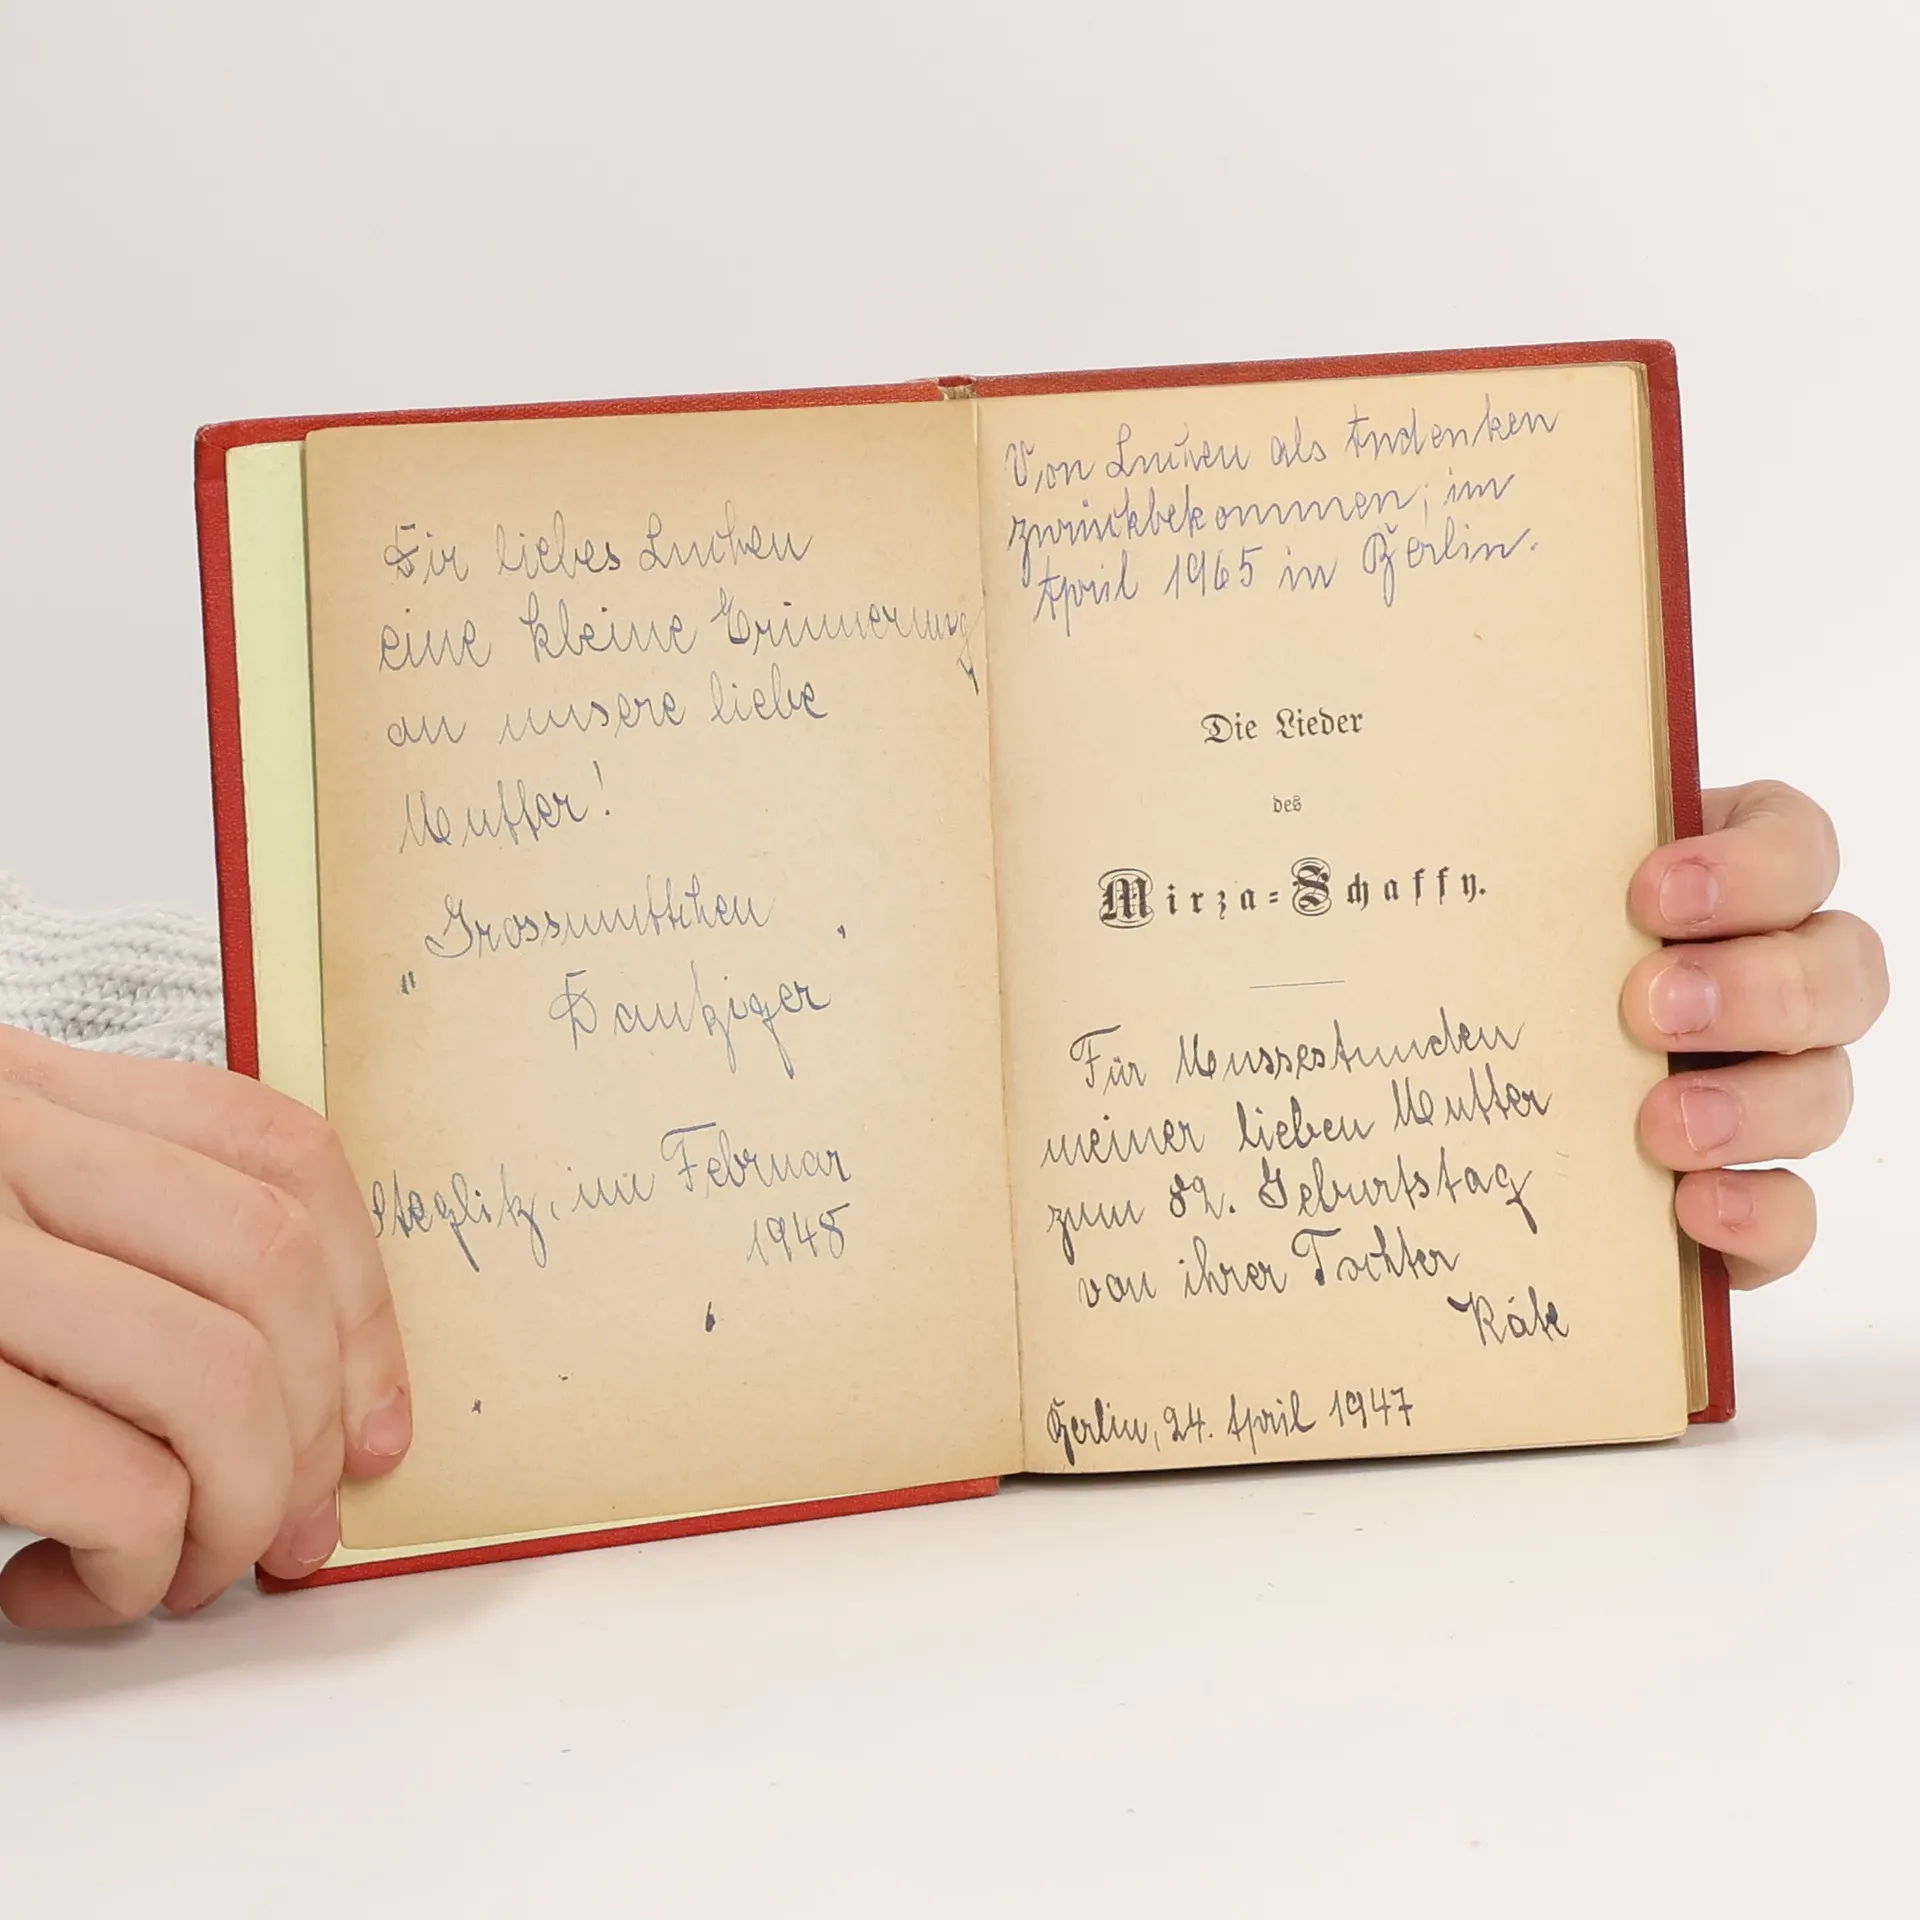 Dir liebes Luchen
eine kleine Erinnerung
an unsere liebe
Mutter!
Grossmuttchen
" Danziger "
Steglitz, im Februar
1948
Von Luchen als Andenken
zurückbekommen, im
April 1965 in Berlin.
Die Lieder
des
Mirza-Schaffy.
Für Mussestunden
meiner lieben Mutter
zum 82. Geburtstag
von ihrer Tochter
Käte
Berlin, 24. April 1947